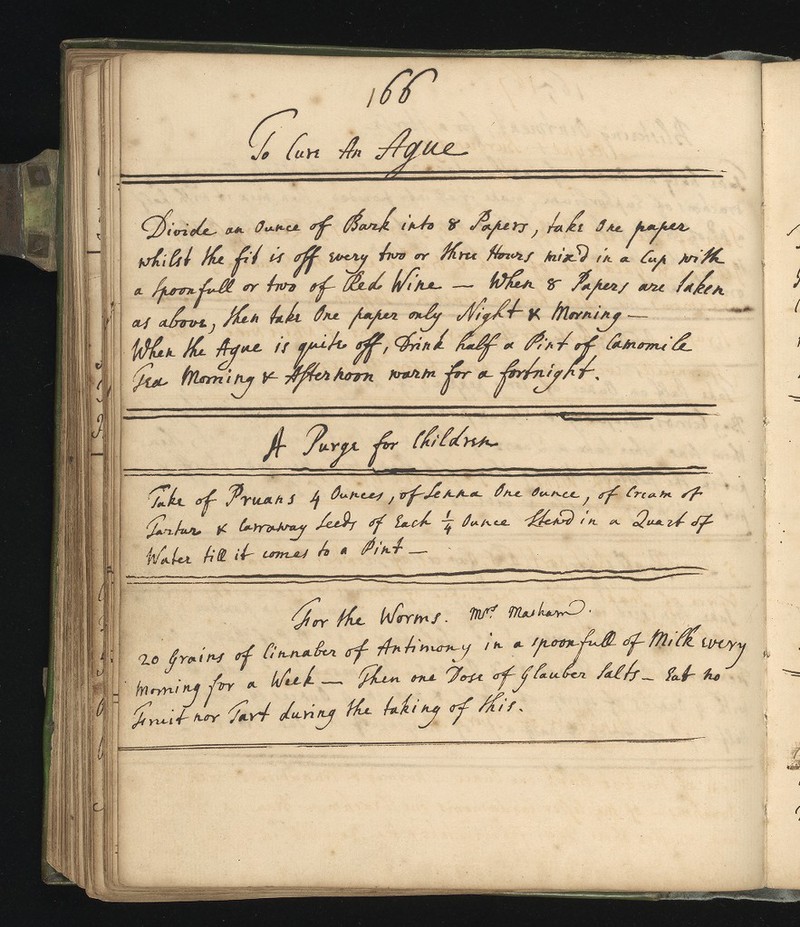 166
To Cure An Ague
Divide an Ounce of Bark into 8 Papers, take One paper
whilst the fit is off every two or three Hours mix'd in a Cup with
a Spoonfull or two of Red Wine — When 8 Papers are taken
as above, then take One paper only Night & Morning —
When the Ague is quite off, Drink half a Pint of Camomile
Tea Morning & Afternoon warm for a fortnight.
A Purge for Children
Take of Pruans 4 Ounces, of Senna One Ounce, of Cream of
Tartar & Carraway Seeds of Each ¼ Ounce Stew'd in a Quart of
Water till it comes to a Pint —
For the Worms. Mrs. Masham.
20 Grains of Cinnaber of Antimony in a spoonfull of Milk every
morning for a Week — Then one Dose of Glauber Salts — Eat no
Fruit nor Tart during the taking of this.